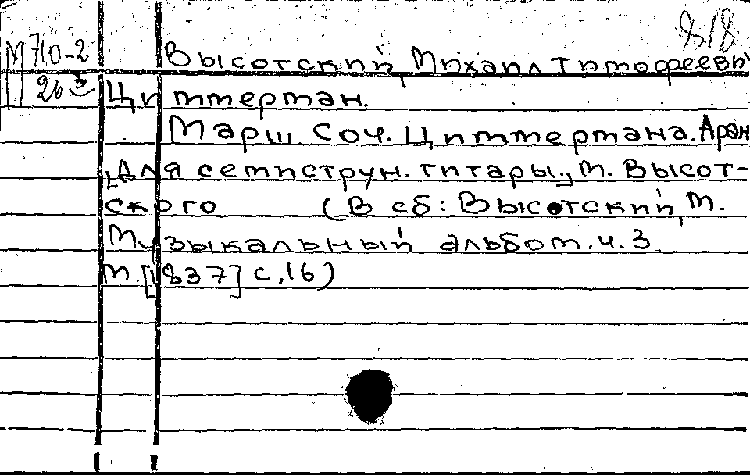 818
М 710-2
263
Высотский, Михаил Тимофееви
Циммерман.
Марш. Соч. Циммермана. Аран
для семиструн. гитары, М. Высот-
ского (В сб: Высотский, М.
Музыкальный альбом. ч. 3.
М [1837] с. 16)